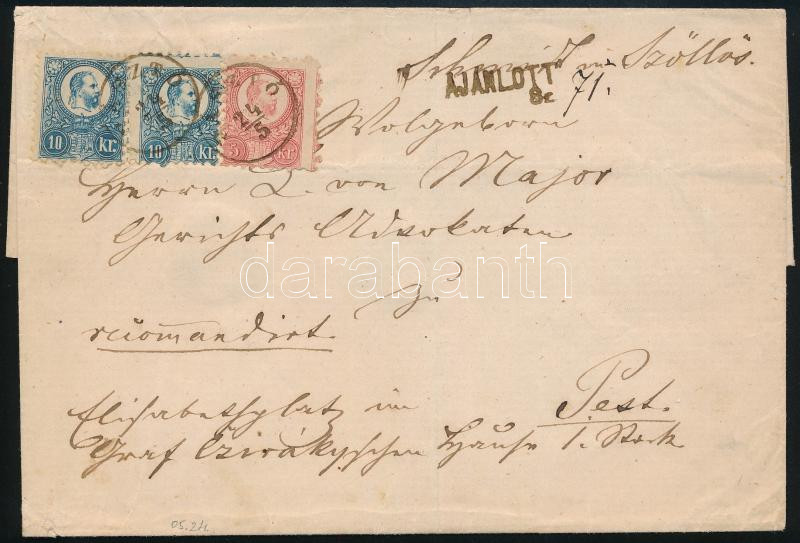 Schmidt in Szöllös.
AJÁNLOTT
8c
71.
Wolgeborn
Herrn L. von Major
Gerichts Advokaten
zu
recommandirt.
Pest.
Elisabethplatz im
Graf Czirákyschen Hause 1. Stock
10 Kr.
10 Kr.
5 Kr.
24/5
darabanth
05.24.